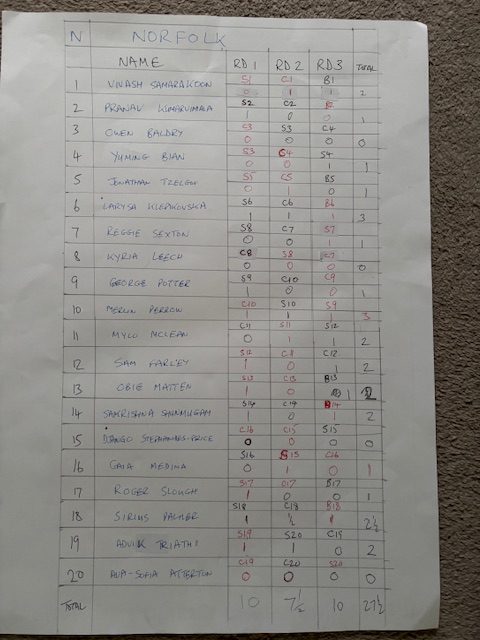 N NORFOLK
NAME RD 1 RD 2 RD 3 TOTAL
S1 C1 B1
1 VINASH SAMARAKOON 0 1 1 2
S2 C2 B2
2 PRANAV KUMARVIMALA 1 0 0 1
C3 S3 C4
3 OWEN BALDRY 0 0 0 0
S3 C4 S4
4 YUMING BIAN 0 0 1 1
S5 C5 B5
5 JONATHAN 0 1 0 1
S6 C6 B6
6 LARYSA KLEPKOVSKA 1 1 1 3
S8 C7 S7
7 REGGIE SEXTON 0 0 1 1
C8 S8 C7
8 KYRIA LEECH 0 0 0 0
S9 C10 C9
9 GEORGE POTTER 1 0 0 1
C10 S10 S9
10 MERLIN PERROW 1 1 1 3
C11 S11 S12
11 MYLO MCLEAN 0 1 1 2
S12 C11 C12
12 SAM FARLEY 1 0 1 2
S13 C13 B13
13 OBIE MATTEN 1 0 1 2
S14 C14 B14
14 SAMRISHNA SHUNMUGAM 1 0 1 2
C16 C15 S15
15 DJANGO 0 0 0 0
S16 S15 C16
16 GAIA MEDINA 0 1 0 1
S17 C17 B17
17 ROGER SLOUGH 1 0 0 1
S18 C18 B18
18 SIRIUS PALMER 1 ½ 1 2½
S19 S20 C19
19 ADVIK TRIATHI 1 1 0 2
C19 C20 S20
20 ALPI-SOFIA ATTERTON 0 0 0 0
TOTAL 10 7½ 10 27½